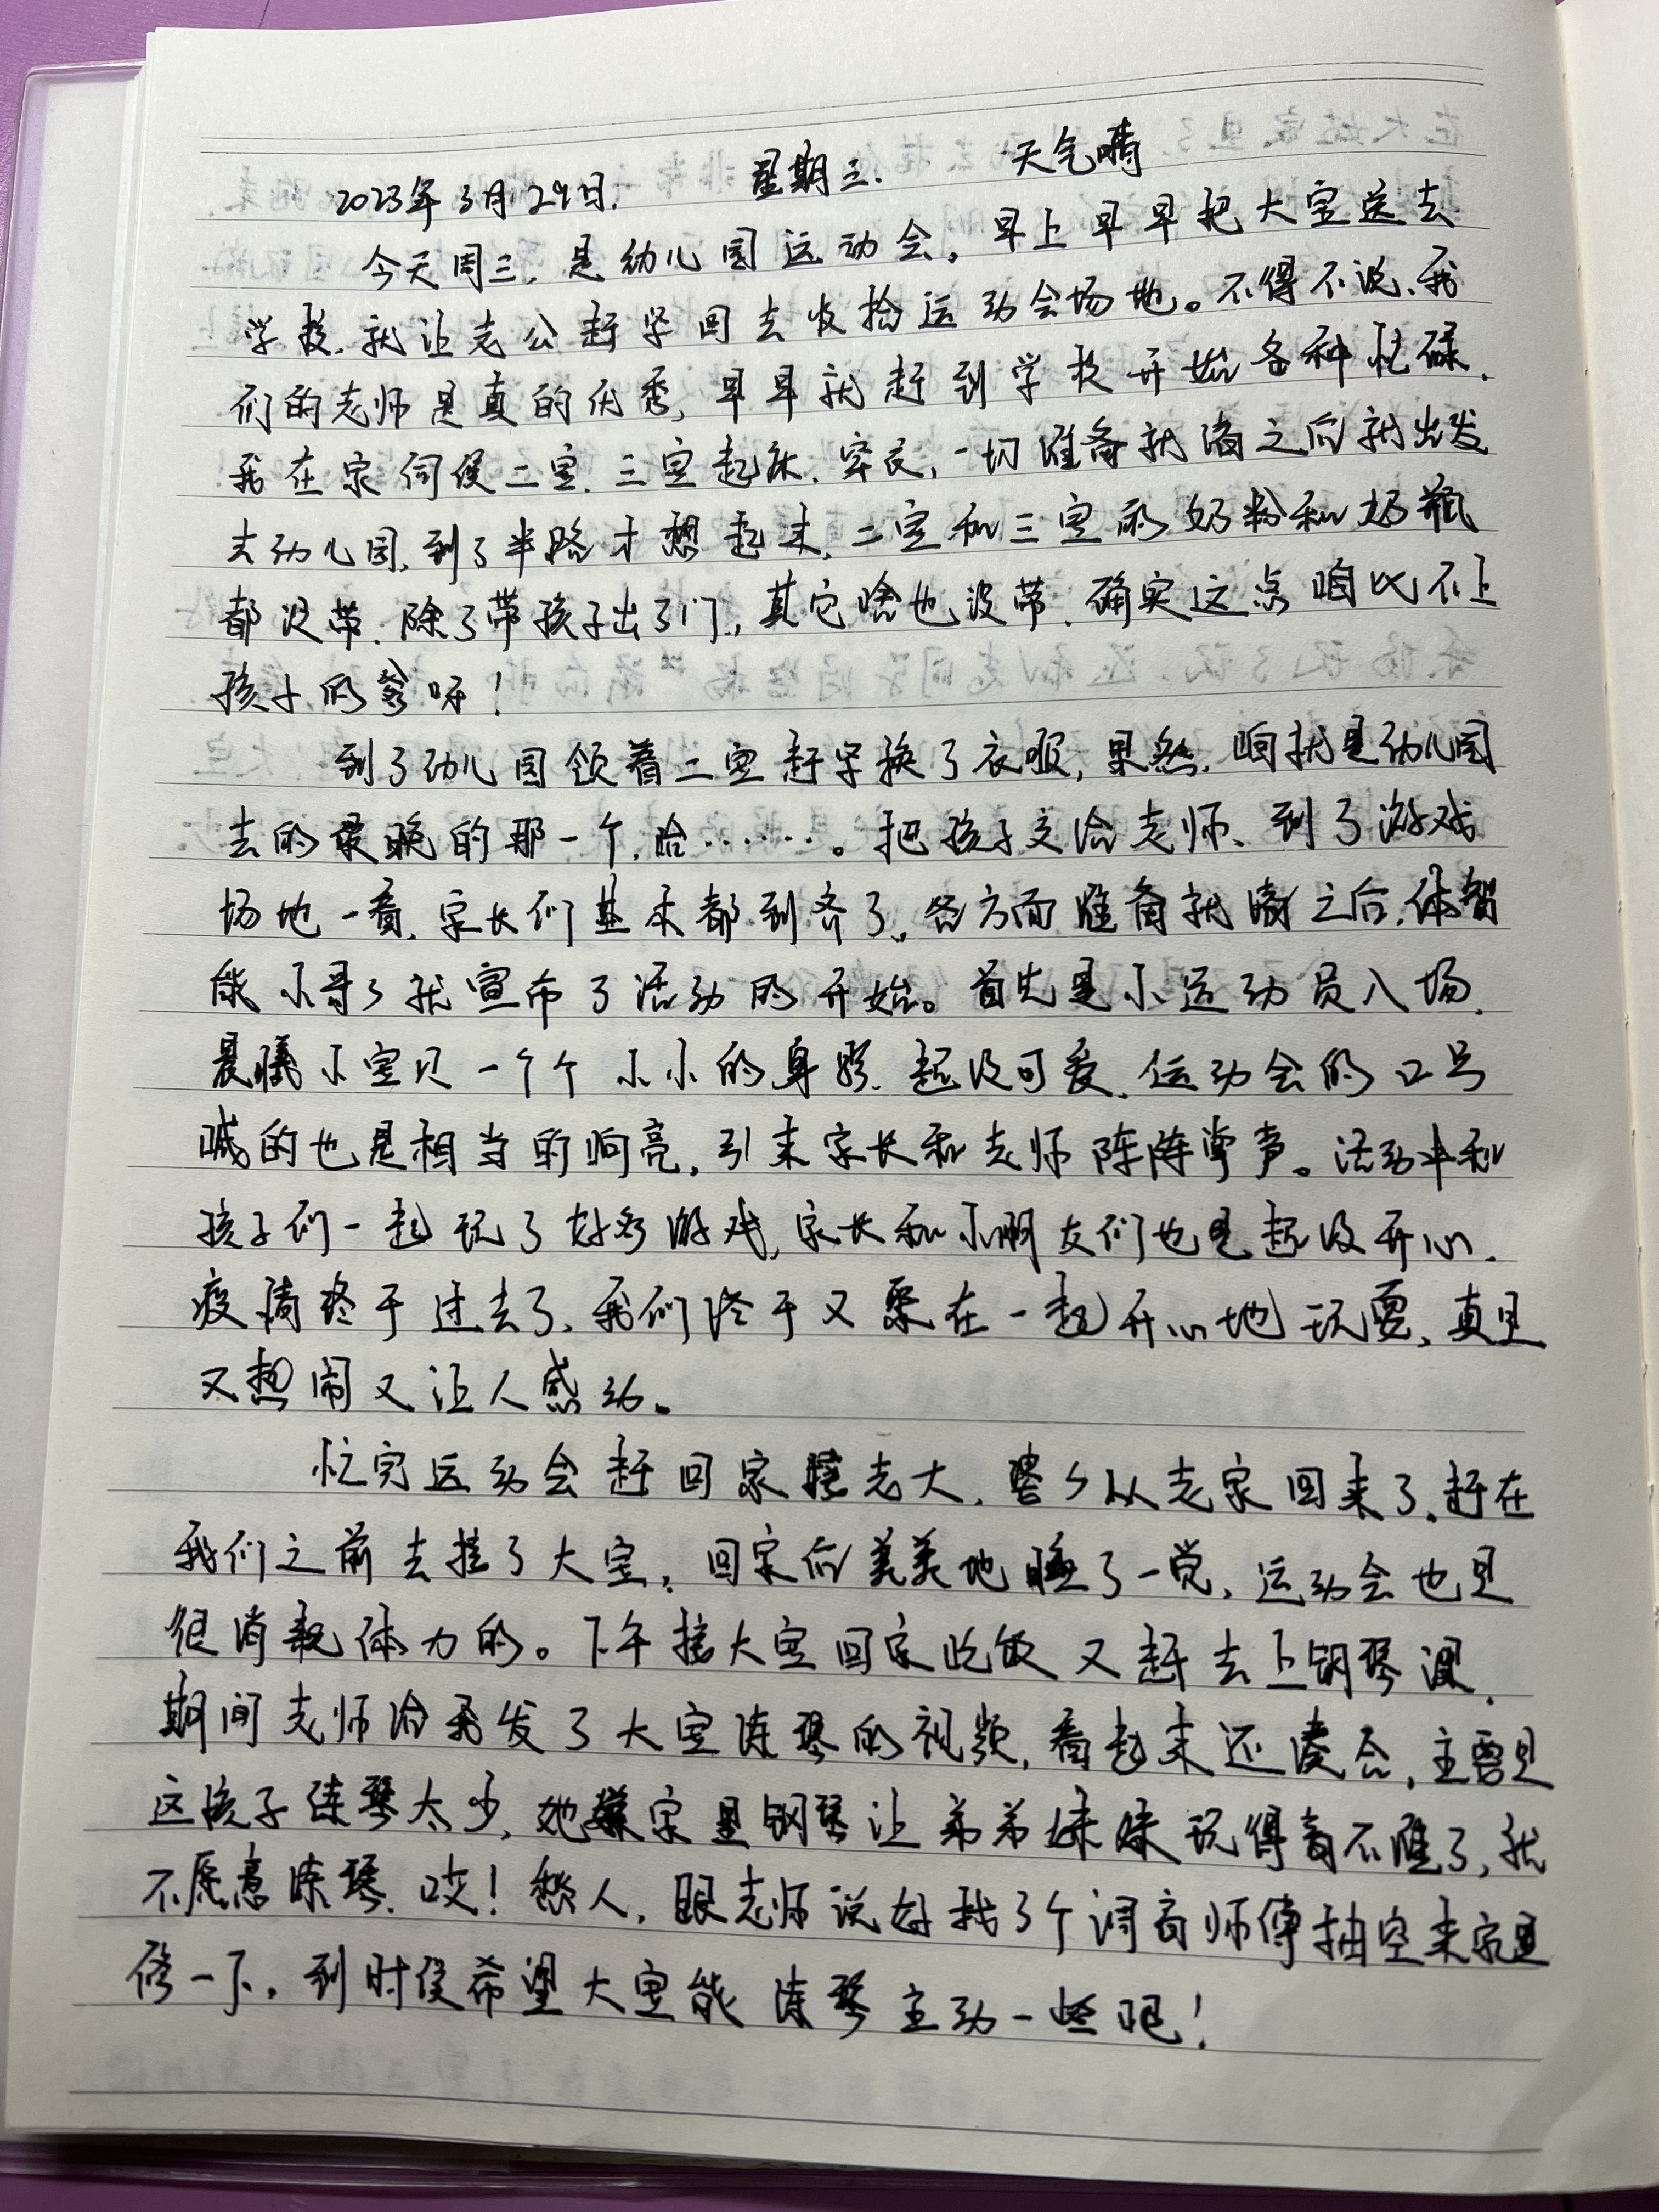 2023年3月29日. 星期三. 天气晴
今天周三,是幼儿园运动会。早上早早把大宝送去
学校,就让老公赶紧回去收拾运动会场地。不得不说,我
们的老师是真的优秀,早早就赶到学校开始各种忙碌.
我在家伺侯二宝、三宝起床、穿衣,一切准备就绪之后就出发
去幼儿园,到了半路才想起来,二宝和三宝的奶粉和奶瓶
都没带,除了带孩子出了门,其它啥也没带,确实这点咱比不上
孩子的爹呀!
到了幼儿园领着二宝赶紧换了衣服,果然,咱就是幼儿园
去的最晚的那一个,哈……。把孩子交给老师、到了游戏
场地一看,家长们基本都到齐了。各方面准备就绪之后,体智
能小哥哥就宣布了活动的开始。首先是小运动员入场.
晨曦小宝贝一个个小小的身影,超级可爱,运动会的口号
喊的也是相当的响亮,引来家长和老师阵阵掌声。活动中和
孩子们一起玩了好多游戏,家长和小朋友们也是超级开心.
疫情终于过去了,我们终于又聚在一起开心地玩耍,真是
又热闹又让人感动。
忙完运动会赶回家接老大,婆婆从老家回来了,赶在
我们之前去接了大宝,回家后美美地睡了一觉,运动会也是
很消耗体力的。下午接大宝回家吃饭又赶去上钢琴课.
期间老师给我发了大宝练琴的视频,看起来还凑合,主要是
这孩子练琴太少,她嫌家里钢琴让弟弟妹妹玩得音不准了,就
不愿意练琴,哎!愁人,跟老师说好找了个调音师傅抽空来家里
修一下,到时侯希望大宝能练琴主动一些吧!